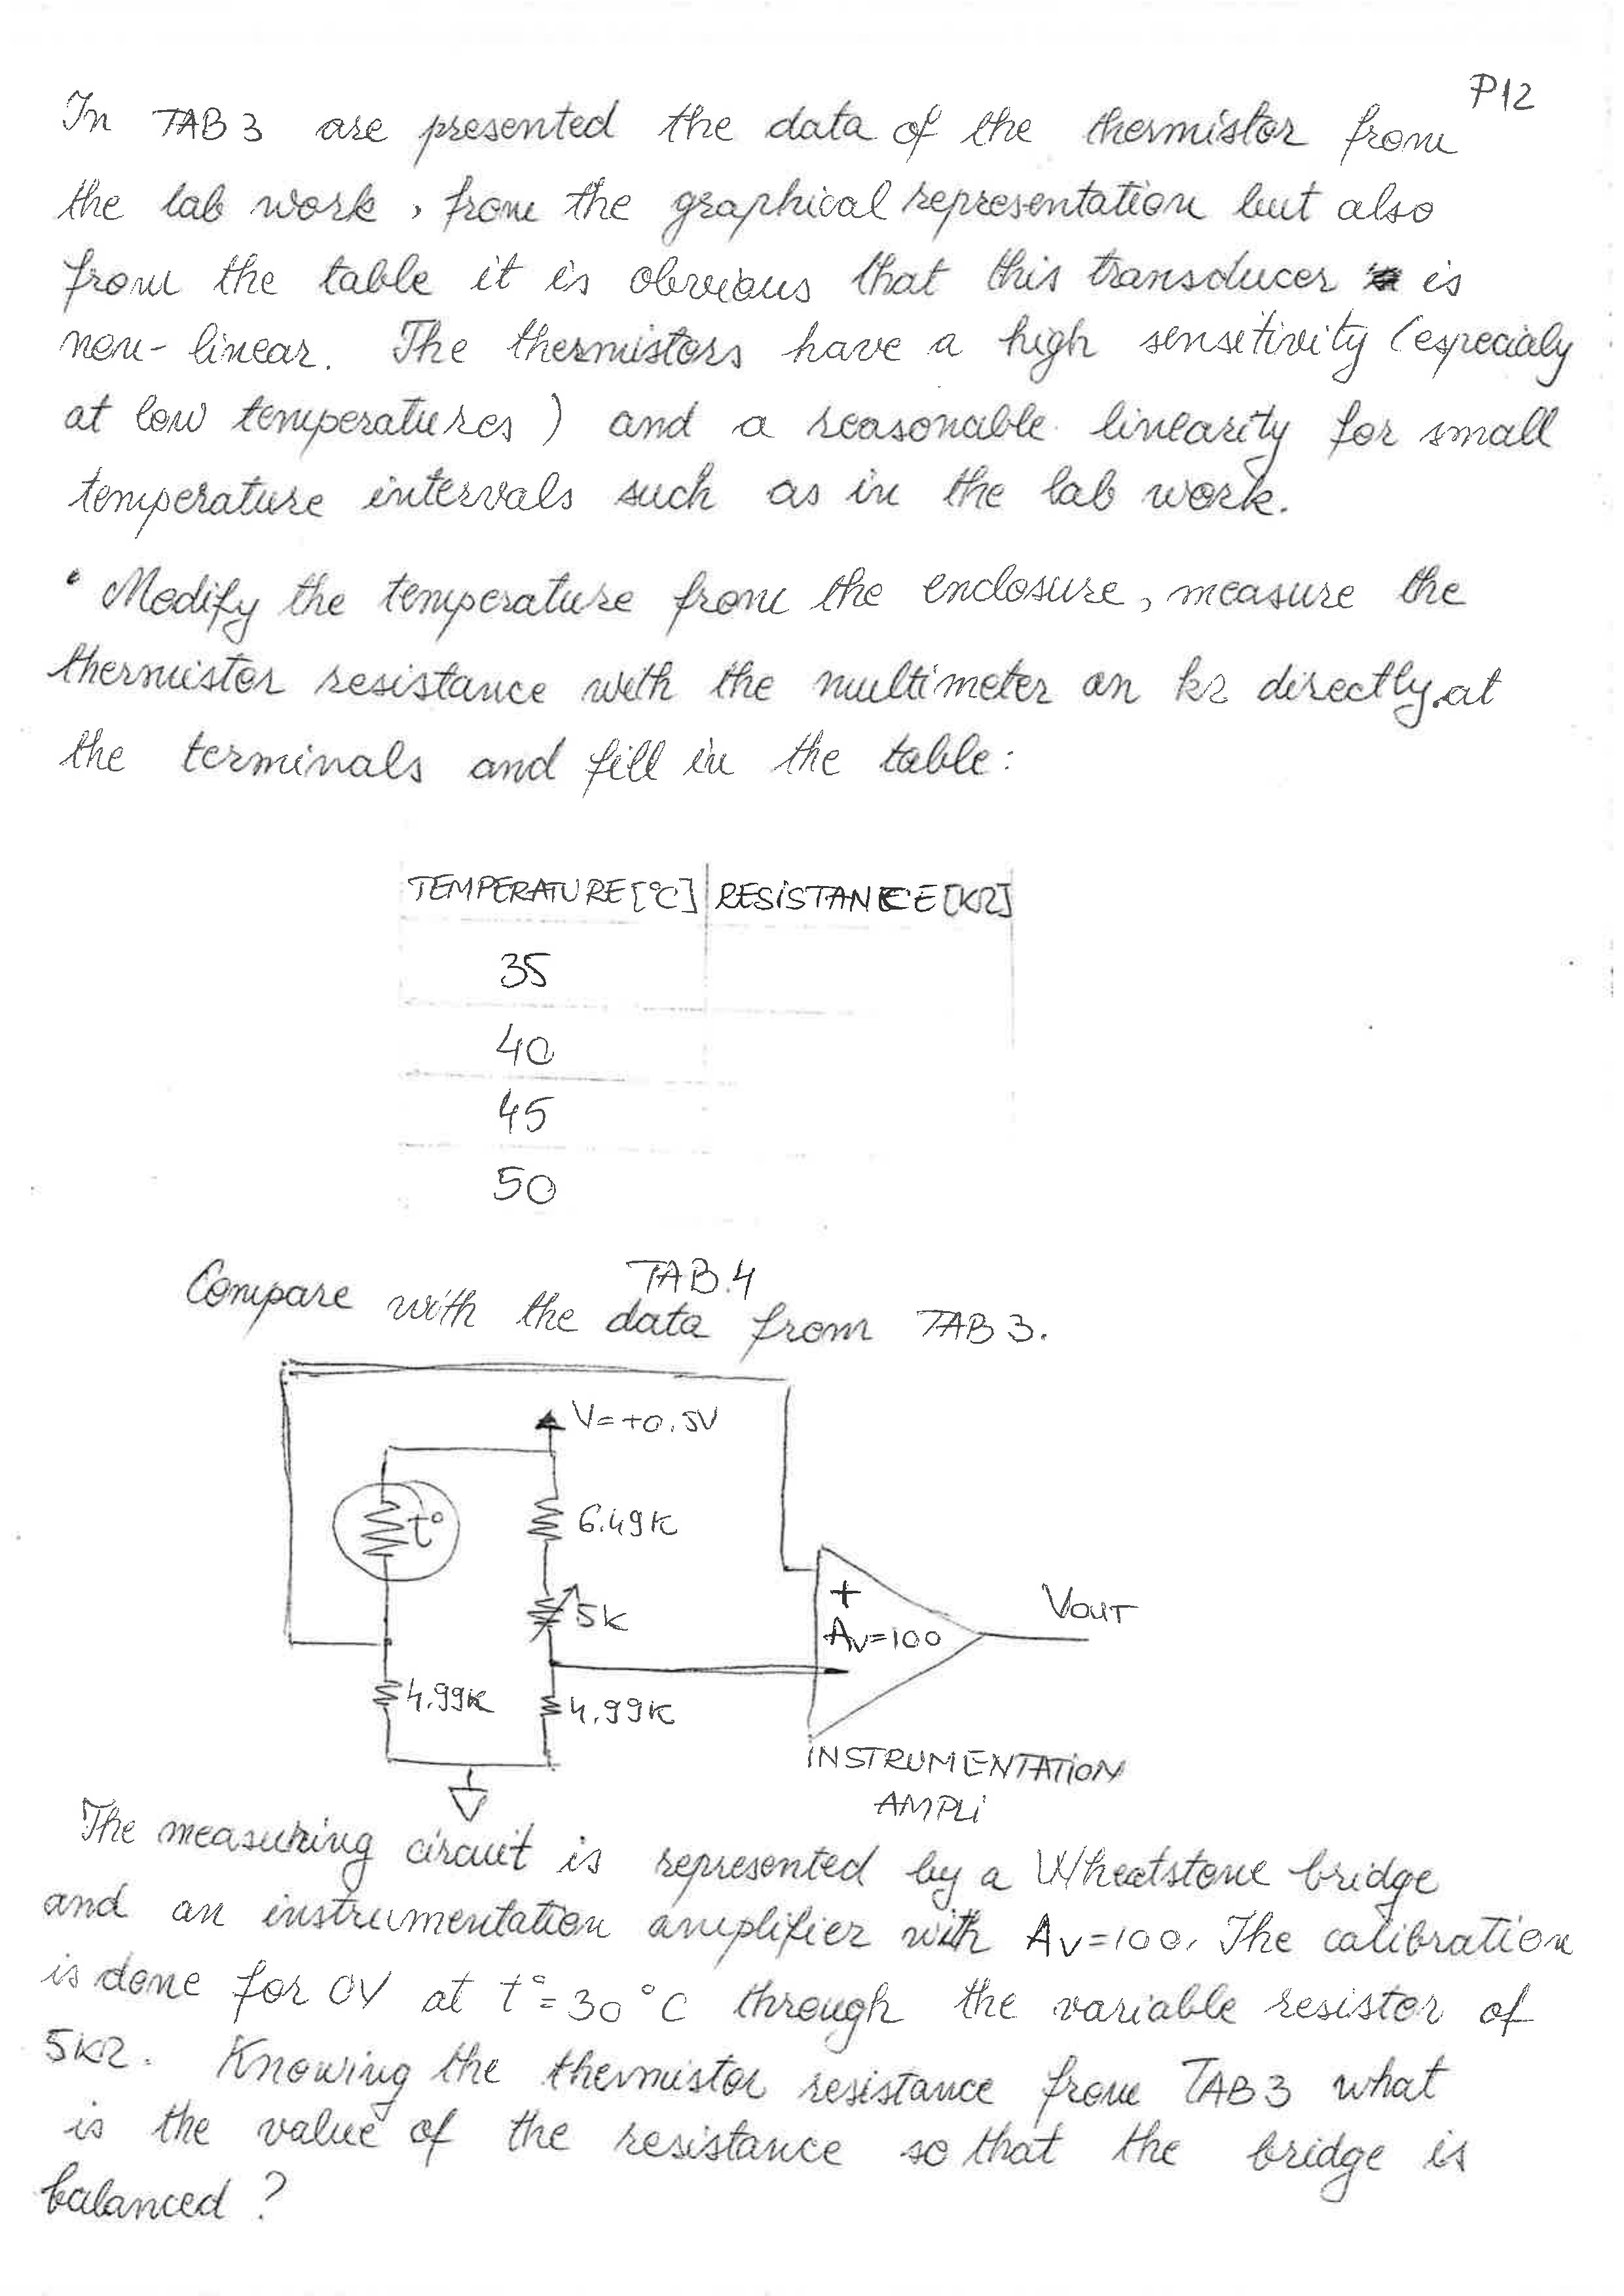 P12
In TAB 3 are presented the data of the thermistor from
the lab work, from the graphical representation but also
from the table it is obvious that this transducer is
non-linear. The thermistors have a high sensitivity (especialy
at low temperatures) and a reasonable linearity for small
temperature intervals such as in the lab work.
• Modify the temperature from the enclosure, measure the
thermistor resistance with the multimeter on kΩ directly at
the terminals and fill in the table:
TEMPERATURE [°C] RESISTANCE [KΩ]
35
40
45
50
TAB.4
Compare with the data from TAB 3.
V=+0.5V
t°
6.49K
5K
+
AV=100
VOUT
-
4.99K
4.99K
INSTRUMENTATION
AMPLI
The measuring circuit is represented by a Wheatstone bridge
and an instrumentation amplifier with AV=100. The calibration
is done for 0V at t°=30°C through the variable resistor of
5KΩ. Knowing the thermistor resistance from TAB 3 what
is the value of the resistance so that the bridge is
balanced?